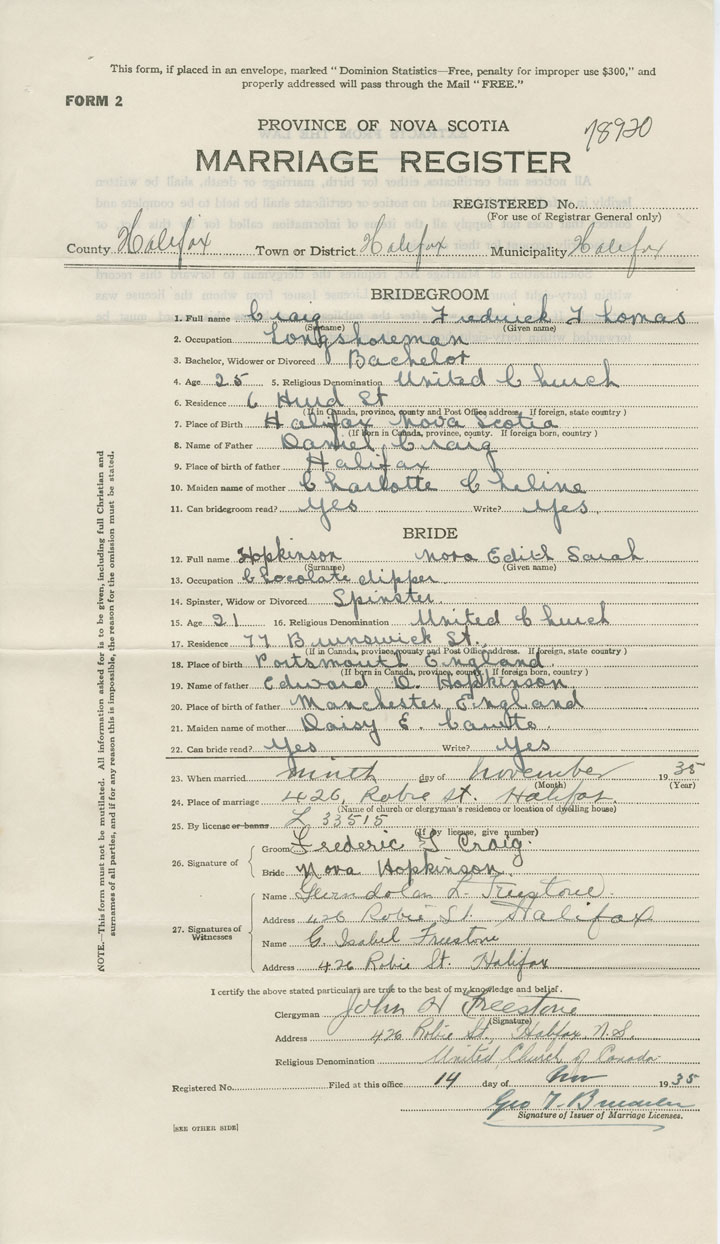 This form, if placed in an envelope, marked "Dominion Statistics—Free, penalty for improper use $300," and
properly addressed will pass through the Mail "FREE."
FORM 2
PROVINCE OF NOVA SCOTIA
78920
MARRIAGE REGISTER
REGISTERED No.
(For use of Registrar General only)
County Halifax Town or District Halifax Municipality Halifax
BRIDEGROOM
1. Full name Craig Fredrick Thomas
(Surname) (Given name)
2. Occupation Longshoreman
3. Bachelor, Widower or Divorced Bachelor
4. Age 25 5. Religious Denomination United Church
6. Residence 6 Hurd St
(If in Canada, province, county and Post Office address. If foreign, state country)
7. Place of Birth Halifax Nova Scotia
(If born in Canada, province, county. If foreign born, country)
8. Name of Father Daniel Craig
9. Place of birth of father Halifax
10. Maiden name of mother Charlotte Cheline
11. Can bridegroom read? Yes Write? Yes
BRIDE
12. Full name Hopkinson Nora Edith Sarah
(Surname) (Given name)
13. Occupation Chocolate dipper
14. Spinster, Widow or Divorced Spinster
15. Age 21 16. Religious Denomination United Church
17. Residence 77 Brunswick St.
(If in Canada, province, county and Post Office address. If foreign, state country)
18. Place of birth Portsmouth England
(If born in Canada, province, county. If foreign born, country)
19. Name of father Edward D. Hopkinson
20. Place of birth of father Manchester England
21. Maiden name of mother Daisy E.
22. Can bride read? Yes Write? Yes
23. When married ninth day of November 1935
(Month) (Year)
24. Place of marriage 426, Robie St. Halifax
(Name of church or clergyman's residence or location of dwelling house)
25. By license or banns L 33515
(If by license, give number)
26. Signature of
Groom Frederic T Craig.
Bride Nora Hopkinson.
27. Signatures of Witnesses
Name L. Freestone.
Address 426 Robie St. Halifax
Name G. Isabel Freestone
Address 426 Robie St. Halifax
I certify the above stated particulars are true to the best of my knowledge and belief.
Clergyman John H Freestone
(Signature)
Address 426 Robie St., Halifax, N.S.
Religious Denomination United Church of Canada.
Registered No. Filed at this office 14 day of Nov 1935
Geo T.
Signature of Issuer of Marriage Licenses.
[SEE OTHER SIDE]
NOTE.—This form must not be mutilated. All information asked for is to be given, including full Christian and
surnames of all parties, and if for any reason this is impossible, the reason for the omission must be stated.